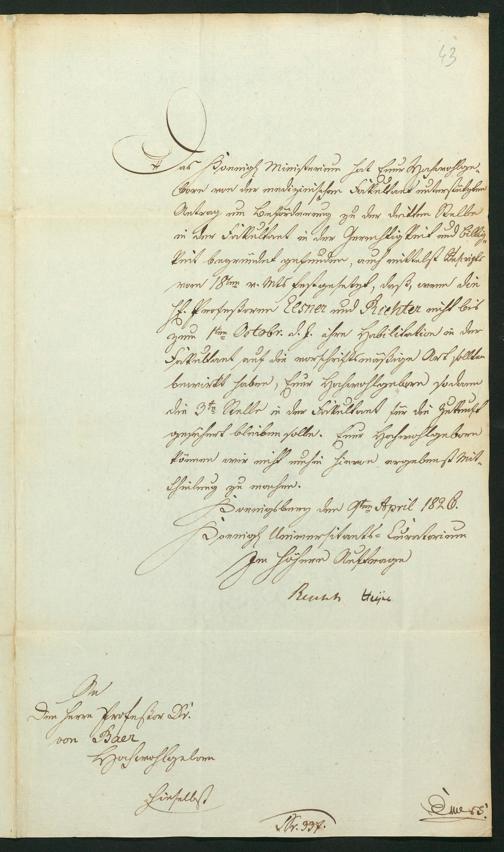 43
Das Koenigl Ministerium hat Euer Hochwohlge-
boren von der medicinischen Fakultaet unterstützten
Antrag um Beförderung zu der dritten Stelle
in der Fakultaet in der Gerechtigkeit und Billig-
keit begründet gefunden, auch mittelst Rescripts
vom 18ten v. Mts festgesetzt, daß, wenn die
HH. Professoren Elsner und Richter nicht bis
zum 1ten Octobr. d. J. ihre Habilitation in der
Fakultaet auf die vorschriftsmäßige Art sollten
bewirkt haben, Euer Hochwohlgeboren sodann
die 3te Stelle in der Fakultaet für die Zukunft
gesichert bleiben solle. Euer Hochwohlgeboren
können wir nicht umhin hievon ergebenst Mit-
theilung zu machen.
Koenigsberg den 9ten April 1826.
Koenigl Universitaets-Curatorium
Im höhern Auftrage
Reusch
An
den Herrn Professor Dr.
von Baer
Hochwohlgeboren
hieselbst
Nr. 337.